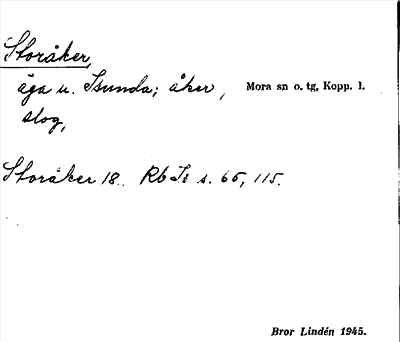 Storåker,
äga u. Isunda; åker, Mora sn o. tg, Kopp. l.
slog,
Storåker 18.. Rb Is s. 65, 115.
Bror Lindén 1945.